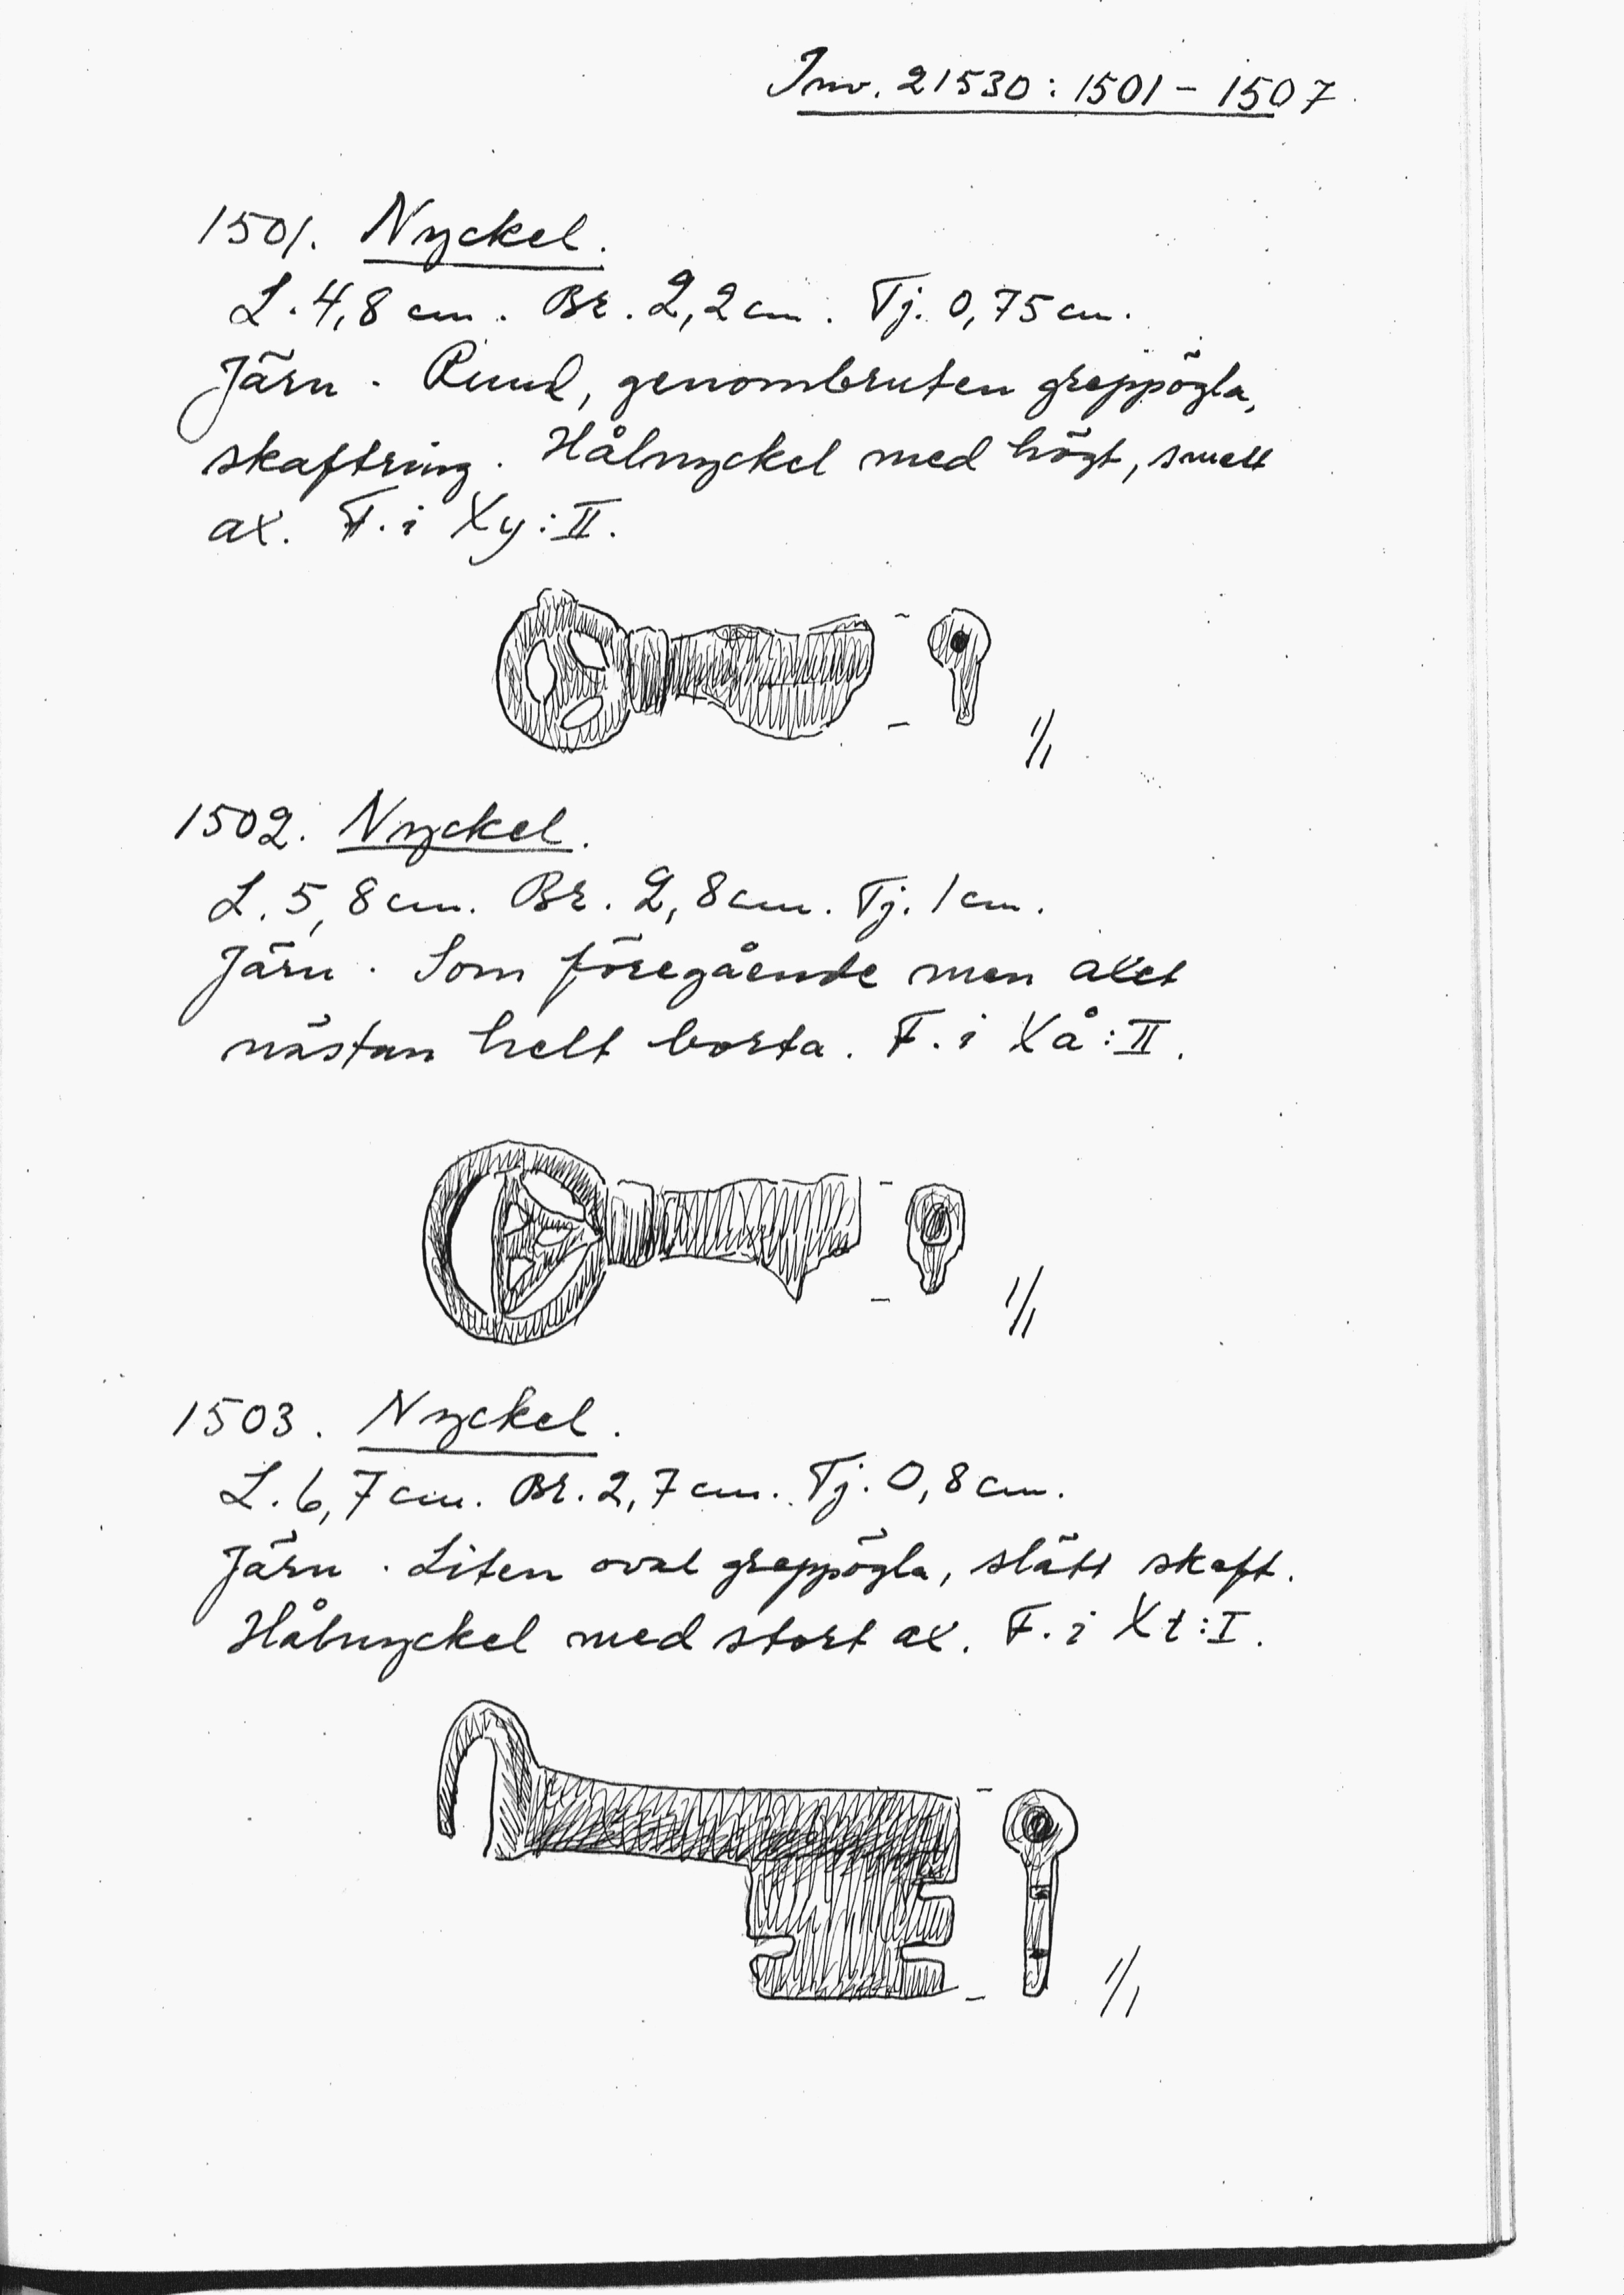 Inv. 21530:1501-1507
1501. Nyckel.
L. 4,8 cm. Br. 2,2 cm. Tj. 0,75 cm.
Järn. Rund, genombruten greppögla,
skaftring. Hålnyckel med högt, smalt
ax. F. i Xy:II.
1/1
1502. Nyckel.
L. 5,8 cm. Br. 2,8 cm. Tj. 1 cm.
Järn. Som föregående men axet
nästan helt borta. F. i Xå:II.
1/1
1503. Nyckel.
L. 6,7 cm. Br. 2,7 cm. Tj. 0,8 cm.
Järn. Liten oval greppögla, slätt skaft.
Hålnyckel med stort ax. F. i Xt:I.
1/1